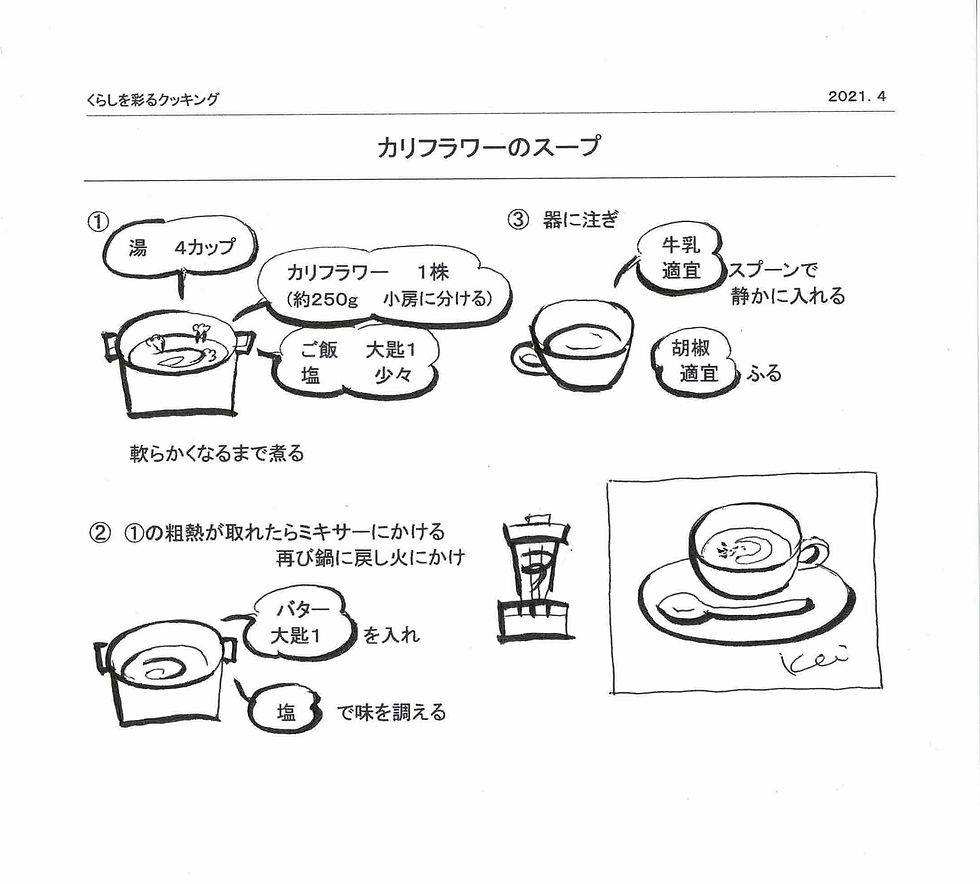 くらしを彩るクッキング
2021. 4
カリフラワーのスープ
①
湯 4カップ
カリフラワー 1株
(約250g 小房に分ける)
ご飯 大匙1
塩 少々
軟らかくなるまで煮る
② ①の粗熱が取れたらミキサーにかける
再び鍋に戻し火にかけ
バター
大匙1
を入れ
塩
で味を調える
③ 器に注ぎ
牛乳
適宜
スプーンで
静かに入れる
胡椒
適宜
ふる
Kei